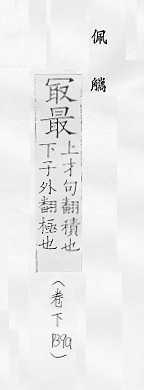 佩觿
冣最
上才句翻積也
下子外翻極也
(卷下 139a)